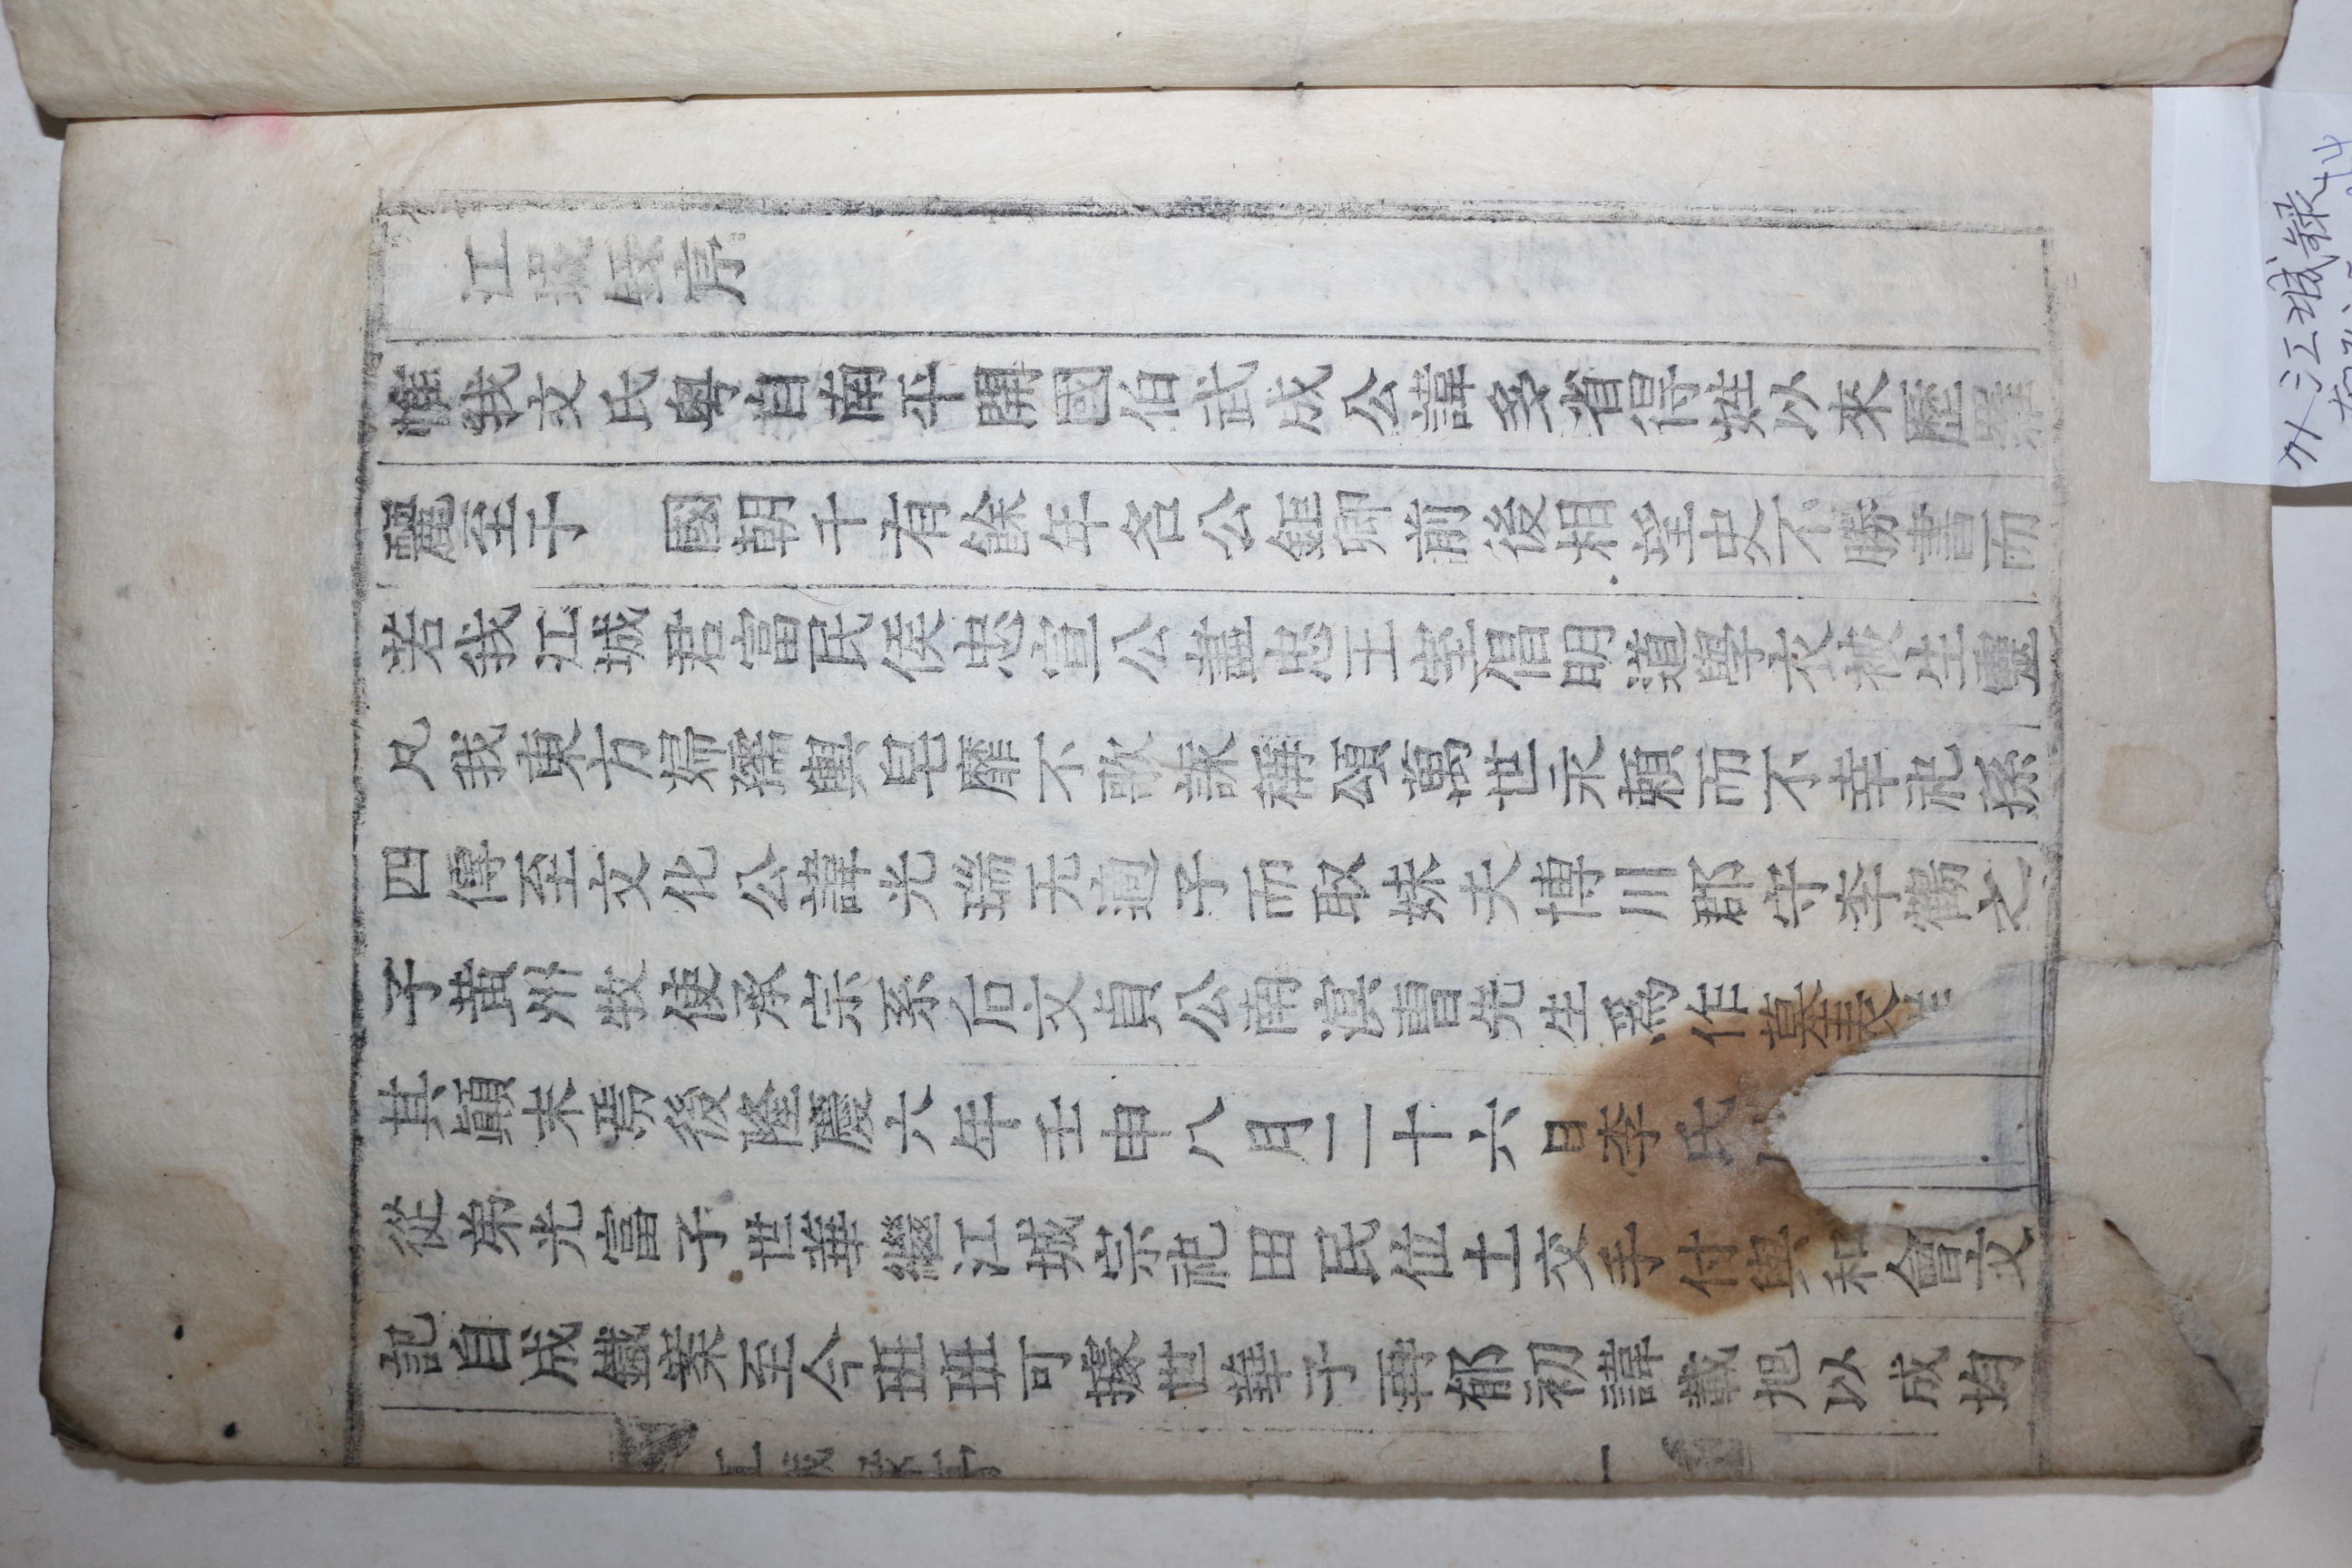 江城錄序
惟我文氏粤自南平開國伯武成公諱多省得姓以來歷羅
麗至于 國朝千有餘年名公鉅卿前後相望史不勝書而
若我江城君富民侯忠宣公盡忠王室倡明道學衣被生靈
凡我東方婦孺輿皂靡不歌詠稱頌萬世永賴而不幸祀孫
四傳至文化公諱光瑞无適子而取妹夫博川郡守李鶴之
子黃州牧使承宗系后文貞公南溟曺先生爲作墓表
其顚末焉後隆慶六年壬申八月二十六日李氏
從弟光富子世華繼江城宗祀田民位土交手付與和會文
記自成鐵案至今班班可據世華子再郁初諱載旭以成均
江城錄序
一
江城錄